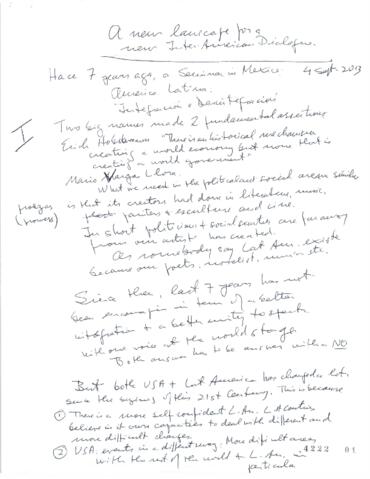 A new landscape for a
new InterAmerican Dialogue.
4 Sept. 2013
Hace 7 years ago, a Seminar in Mexico:
America Latina:
"Integración o Desintegración"
I
Two big names made 2 fundamental assertions
Erich "There is an historical mechanism
creating a world economy but none that is
creating a world government"
Mario Varga Llosa
What we need in the political and social areas similar
is that its creators had done in literature, music,
painters + esculture and cine.
In short politicians + social scientes are far away
from our artist has created.
As somebody say Lat Am. existe
because our poets, novelist, musin etc.
Since then, last 7 years has not
been in term of a better
integration + a better unity to speak
with one voice at the world stage.
Both answer has to be answer with a NO
But both USA + Lat America has changed a lot
since the of this 21st Century. This is because
① There is a more self confident L. Am. L A countries
believe in it owns capacities to deal with different and
more difficult
② USA in a different way. More difficult areas
with the rest of the world + L. Am. in
particular
4222 01